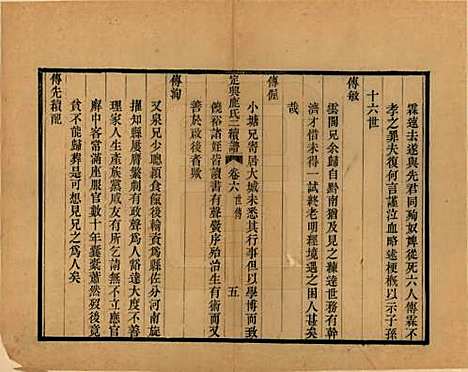 霖遠去遂與先君同殉奴婢從死六人傅霖不
孝之罪夫復何言謹泣血略述梗概以示子孫
十六世
傅敏
雲閣兄余歸自黔南猶及見之練達世務有幹
濟才惜未得一試終老明經境遇之困人甚矣
哉
傅偓
小塘兄寄居大城未悉其行事但以學博而致
定興鹿氏二續譜 卷六 世傳 五
饒裕諸姪皆讀書有聲黌序殆治生有術而
善於啟後者歟
傅詢
又泉兄少聰穎食餼後輸資為縣佐分河南旋
擢知縣屢膺繁劇有政聲為人豁達大度不問
理家人生產族黨戚友有所乞請無不立應官
廨中客常滿座服官數十年囊橐蕭然歿後
貧不能歸葬是可想見兄之為人矣
傅先積配